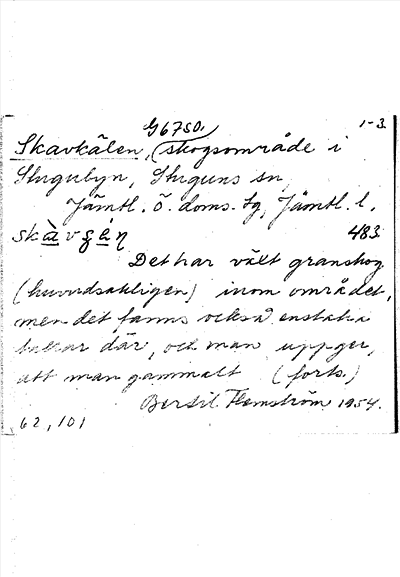 G6750, 1-3.
Skavkälen, (skogsområde i
Stugubyn, Stuguns sn,
Jämtl. ö. doms. tg, Jämtl. l.
483
Det har vält granskog
(huvudsakligen) inom området,
men det fanns också enstaka
tallar där, och man uppger,
att man gammalt (forts.)
Bertil Flemström 1954.
62, 101